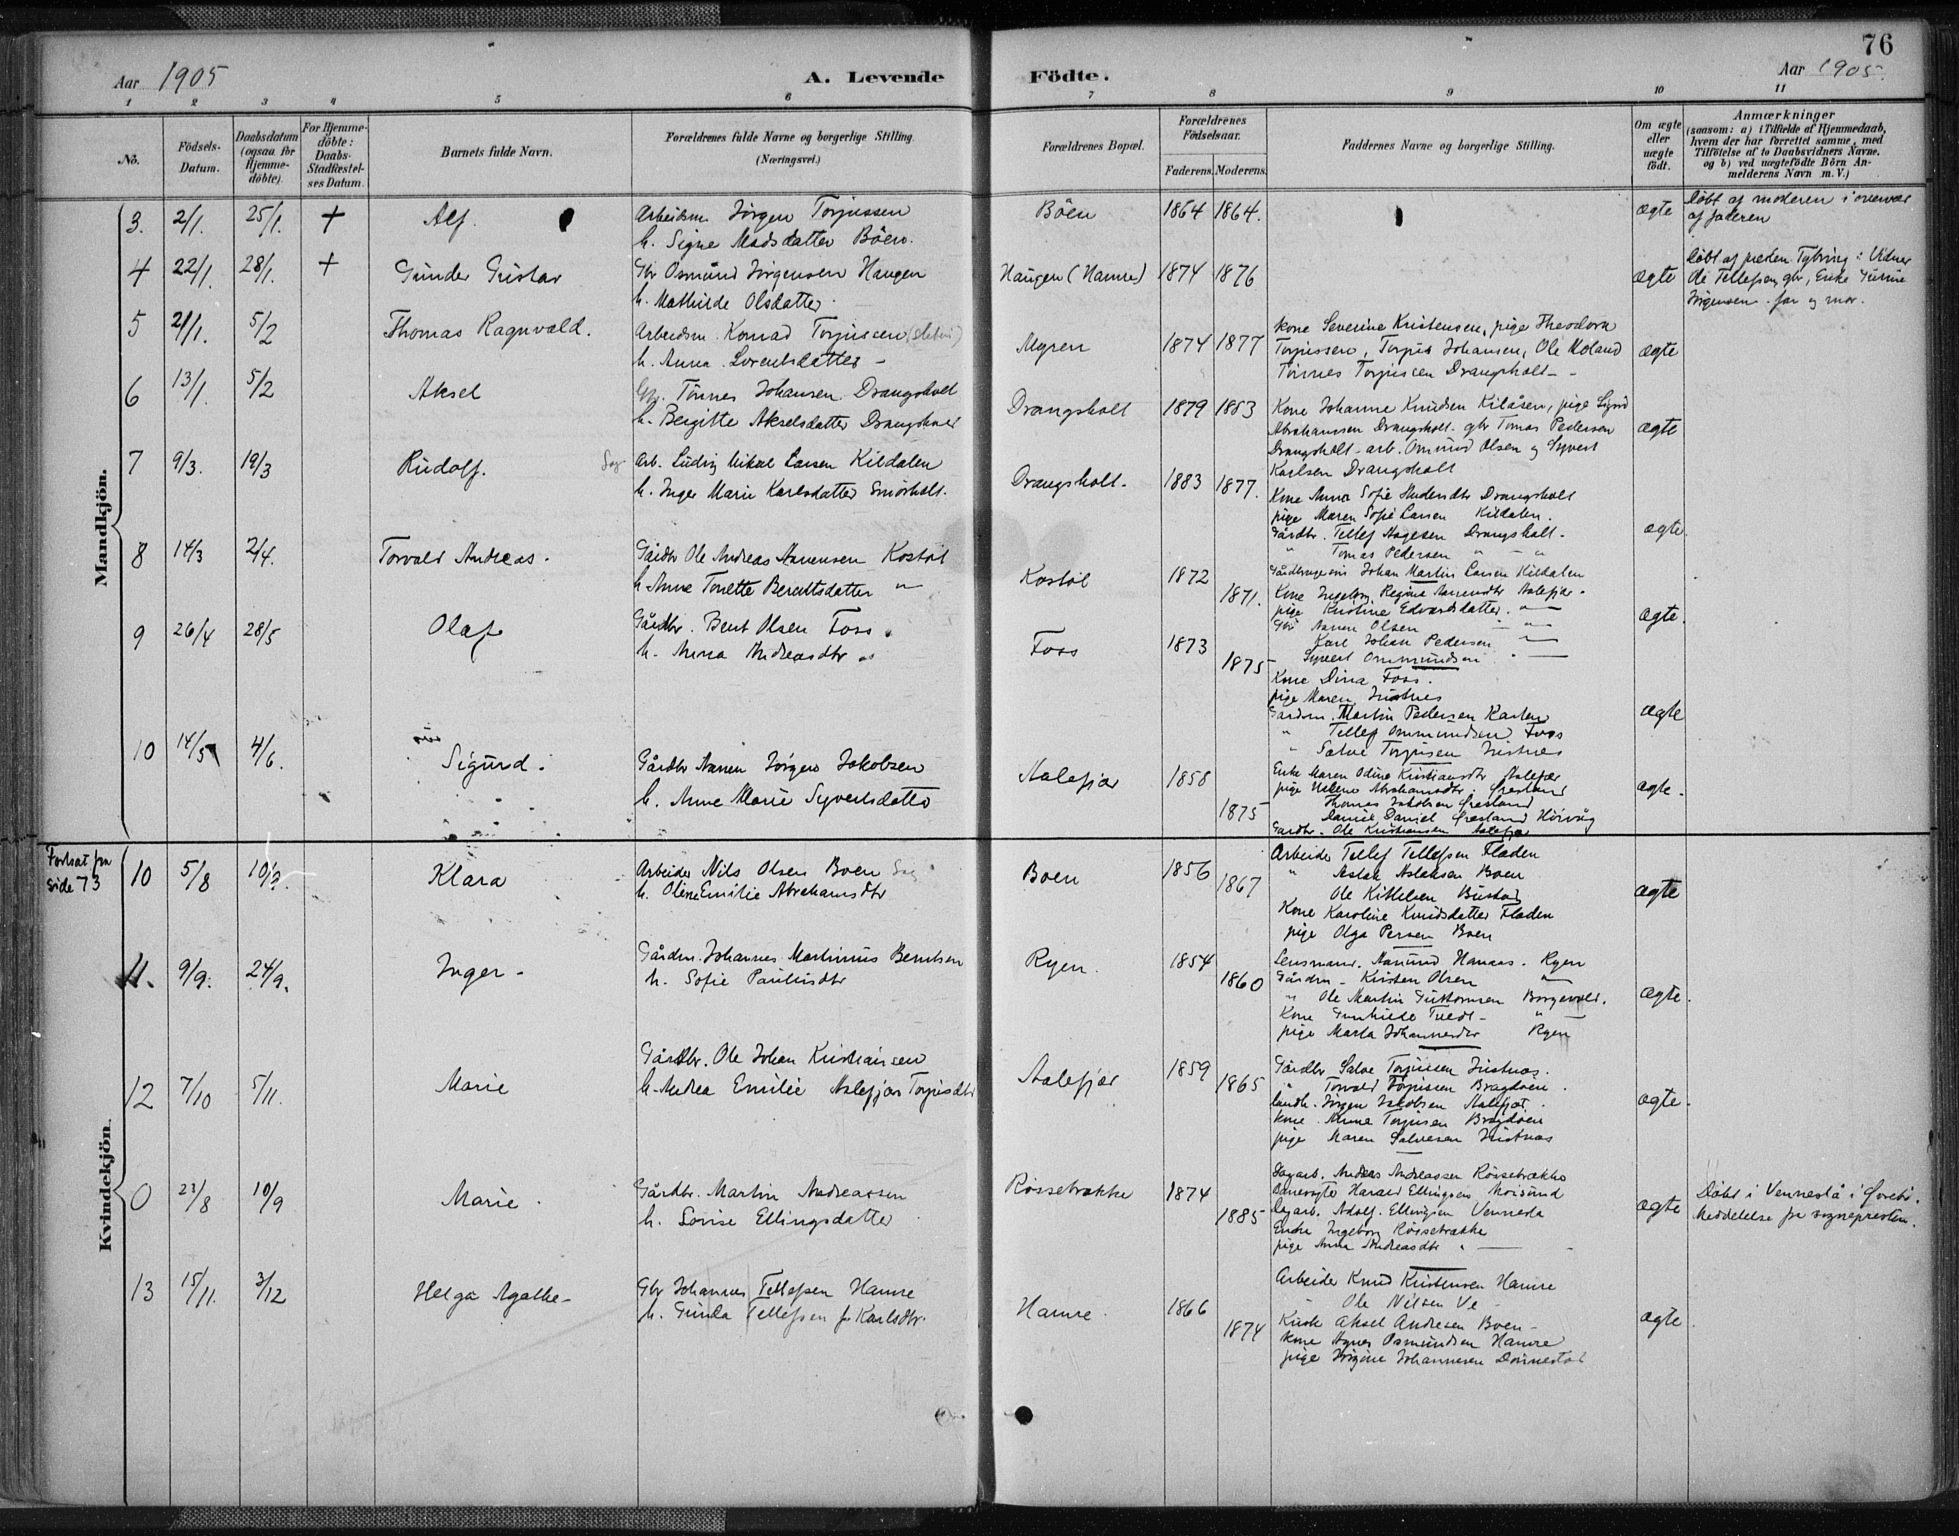 76
Aar 1905
A. Levende Födte.
Aar 1905.
1 2 3 4 5 6 7 8 9 10 11
No.
Födsels-
Datum.
Daabsdatum
(ogsaa for
Hjemme-
döbte).
For Hjemme-
döbte:
Daabs-
Stadfæstel-
ses Datum.
Barnets fulde Navn.
Forældrenes fulde Navne og borgerlige Stilling.
(Næringsvei.)
Forældrenes Bopæl.
Forældrenes
Födselsaar.
Faderens. Moderens.
Faddernes Navne og borgerlige Stilling.
Om ægte
eller
uægte
født.
Anmærkninger
(saasom: a) i Tilfælde af Hjemmedaab,
hvem der har forrettet samme, med
Tilföielse af to Daabsvidners Navne,
og b) ved uægtefödte Börn An-
melderens Navn m. V.)
Mandkjön.
3. 2/1. 25/1. + Alf.
Arbeidsm Jörgen Torjussen
h. Signe Madsdatter Böen.
Böen 1864 1864. ægte
Döbt af moderen i overvær
af faderen
4 22/1. 28/1. + Gunder Gustav
Gbr Osmund Jörgensen Haugen
h. Mathilde Olsdatter.
Haugen (Hamre) 1874 1876 ægte
Ole Tellefsen, gbr, Enke
Jörgensen. far og mor.
5 2/1. 5/2 Thomas Ragnvald.
Arbeidsm. Konrad Torjussen
h. Anna Lorentsdatter
Myren 1874 1877
Kone Severine Kristensen, pige Theodora
Torjussen, Torjus Johansen, Ole Moland
Tönnes Torjussen Drangsholt
ægte
6 13/1. 5/2 Aksel
Gbr. Tönnes Johansen Drangsholt
h. Bergitte Akselsdatter Drangsholt
Drangsholt 1879 1883
Kone Johanne Knudsen Kilåsen, pige Sigrid
Abrahamsen Drangsholt. gbr Tomas Pedersen
Drangsholt. arb. Omund Olsen og Syvert
Karlsen Drangsholt
ægte
7 9/3. 19/3 Rudolf.
Arb. Ludvig Mikal Larsen Kildalen
h. Inger Marie Karlsdatter
Drangsholt. 1883 1877.
Kone Anna Sofie Drangsholt
pige Maren Sofie Larsen Kildalen.
Gårdbr. Tellef Aagesen Drangsholt.
" Tomas Pedersen " "
Johan Martin Larsen Kildalen
ægte.
8 14/3 2/4. Torvald Andreas.
Gårdbr Ole Andreas Aanensen Kostöl
h. Anne Tonette Berentsdatter "
Kostöl 1872 1871.
Kone Ingeborg Regine Aalefjær.
pige Kristine Edvardsdatter. "
Gbr Aanen Olsen "
Karl Johan Pedersen "
Syvert Ommundsen "
ægte.
9 26/4 28/5 Olaf
Gårdbr. Bent Olsen Foss.
h. Anna Andreasdtr "
Foss 1873 1875
Kone Dina Foss.
pige Maren Justnes
Gårdm. Martin Pedersen
" Tellef Ommundsen Foss
" Salve Torjusen Justnes
ægte
10 14/5 4/6. Sigurd.
Gårdbr Aanen Jörgen Jakobsen
h. Anne Marie Syvertsdatter
Aalefjær 1858 1875
Enke Maren Odine Kristiansdtr Aalefjær
pige Helene Abrahamsdtr. Øresland
Thomas Jakobsen Øresland
Daniel Øresland
Gårdbr. Ole Kristiansen Aalefjær
ægte.
Fortsat fra
side 73
Kvindekjön.
10 5/8 10/9. Klara
Arbeider Nils Olsen Boen
h. Oline Emilie Abrahamsdtr
Boen 1856 1867
Arbeider Tellef Tellefsen Fladen
" Aslak Aslaksen Boen
Ole Kittelsen
Kone Karoline Knudsdatter Fladen
pige Olga Persen Boen
ægte
11. 9/9. 24/9. Inger -
Gårdm. Johannes Martinius Berntsen
h. Sofie Paulusdtr
Ryen. 1854 1860
Lensmand. Aanund Hanaas. Ryen
Gårdm. Kristen Olsen "
" Ole Martin Guttormsen
Kone Gunhilde Tvedt "
pige Marta Johannesdtr Ryen
ægte.
12 7/10 5/11. Marie
Gårdbr. Ole Johan Kristiansen
h. Andrea Emilie Aalefjær Torjusdtr
Aalefjær 1859 1865
Gårdbr Salve Torjussen Justnes.
" Torvald Torjussen Bragdöen.
Jörgen Jakobsen Aalefjær.
Kone Anne Torjusen Bragdöen
pige Maren Salvesen Justnes
ægte.
0 23/8 10/9 Marie.
Gårdbr. Martin Andreassen
h. Lovise Ellingsdatter
Røssetrække 1874 1885
Andreas Andreassen Røssetrække
Harald Ellingsen Moisund
Adolf Ellingsen Vennesla
Enke Ingeborg Røssetrække
pige Anna Andreasdtr "
ægte
Döbt i Vennesla i Øvrebø.
Meddelelse fra sognepresten.
13 15/11. 3/12 Helga Agathe -
Gbr Johannes Tellefsen Hamre
h. Gunda Tellefsen f. Karlsdtr.
Hamre. 1866 1874
Arbeider Knud Kristensen Hamre
- Ole Nilsen Ve -
Aksel Andresen Boen -
kone Agnes Osmundsen Hamre
pige Jörgine Johannesen Dönnestad
ægte.